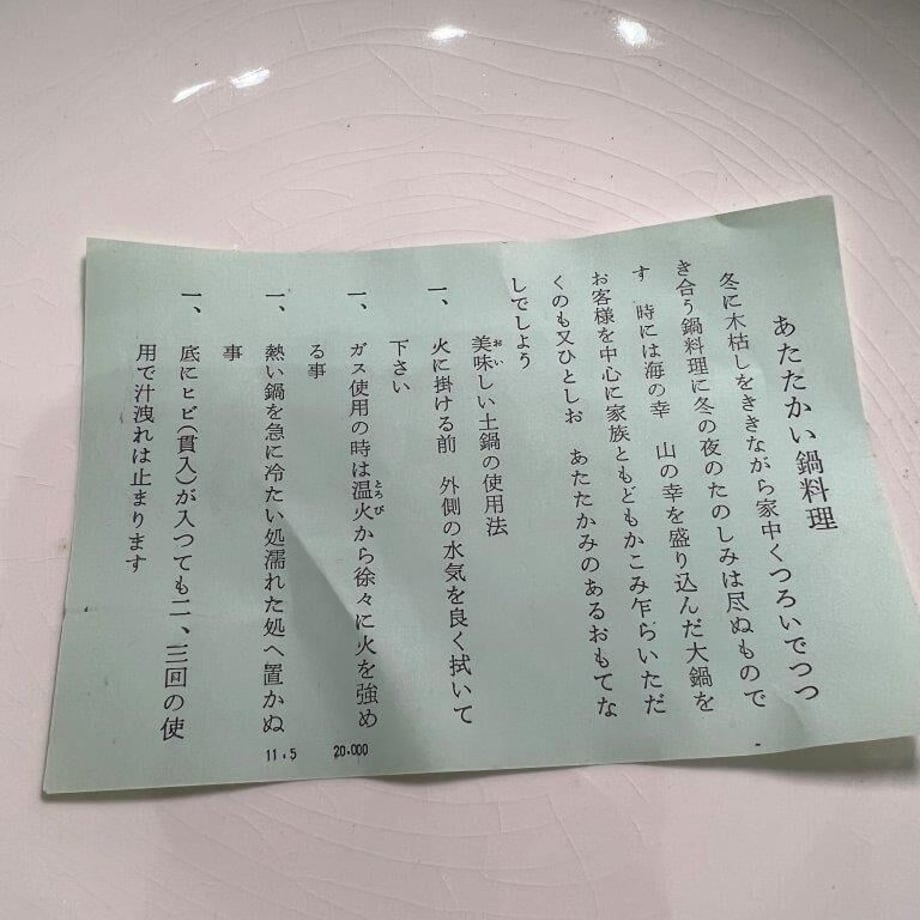 あたたかい鍋料理
冬に木枯しをききながら家中くつろいでつつ
き合う鍋料理に冬の夜のたのしみは尽ぬもので
す　時には海の幸　山の幸を盛り込んだ大鍋を
お客様を中心に家族ともどもかこみ乍らいただ
くのも又ひとしお　あたたかみのあるおもてな
しでしよう
美味しい土鍋の使用法
おい
一、火に掛ける前　外側の水気を良く拭いて
下さい
一、ガス使用の時は温火から徐々に火を強め
とろび
る事
一、熱い鍋を急に冷たい処濡れた処へ置かぬ
事
一、底にヒビ(貫入)が入つても二、三回の使
用で汁洩れは止まります
11.5　20.000